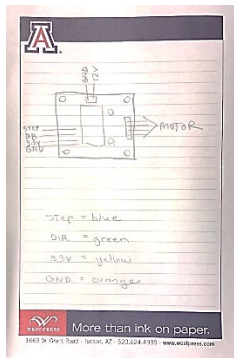 A
GND
12V
STEP
DIR
3.3V
GND
MOTOR
STEP = blue
DIR = green
3.3V = yellow
GND = orange
WESTPRESS
More than ink on paper.
1663 W. Grant Road - Tucson, AZ - 520.624.4939 - www.westpress.com